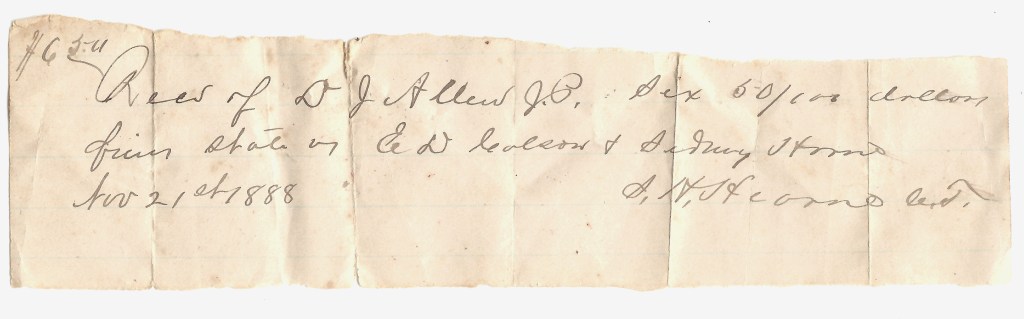 $6 50
Recd of D J Allen J.P. Six 50/100 dollars
fines State vs E D Colson & Sidney Horne
Nov 21st 1888
S. H. Hearne C.T.